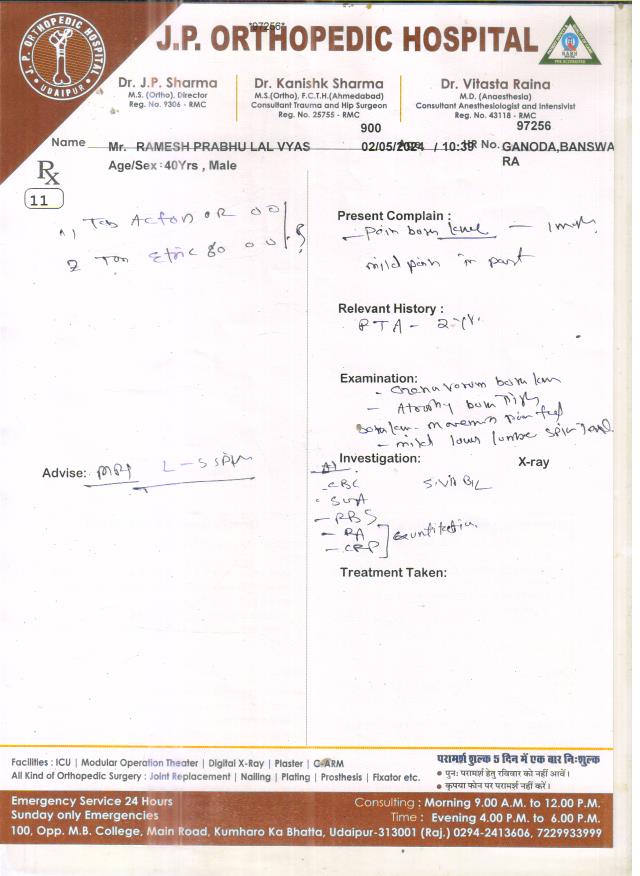 *97256*
J.P. ORTHOPEDIC HOSPITAL
J. P. ORTHOPEDIC HOSPITAL
UDAIPUR
Dr. J.P. Sharma
M.S. (Ortho), Director
Reg. No. 9306 - RMC
Dr. Kanishk Sharma
M.S.(Ortho), F.C.T.H.(Ahmedabad)
Consultant Trauma and Hip Surgeon
Reg. No. 25755 - RMC
Dr. Vitasta Raina
M.D. (Anaesthesia)
Consultant Anesthesiologist and Intensivist
Reg. No. 43118 - RMC
900 97256
Name Mr. RAMESH PRABHU LAL VYAS 02/05/2024 / 10:39 HR No. GANODA,BANSWA
RA
Age/Sex : 40Yrs , Male
Rx
11
1) Tab
2 Tab
Present Complain :
- Pain both knee - 1 month
mild pain in past
Relevant History :
RTA - 2 yr.
Examination:
- Genu varum both knee
- Atrophy both thigh
both knee movements painful
- mild lower lumbar spine
Advise: MRI L-S spine
Investigation: X-ray
- CBC S. Vit B12
- SUA
- RBS
- RA
- CRP
Treatment Taken:
Facilities : ICU | Modular Operation Theater | Digital X-Ray | Plaster | C-ARM
All Kind of Orthopedic Surgery : Joint Replacement | Nailing | Plating | Prosthesis | Fixator etc.
परामर्श शुल्क 5 दिन में एक बार निःशुल्क
• पुनः परामर्श हेतु रविवार को नहीं आवें।
• कृपया फोन पर परामर्श नहीं करें।
Emergency Service 24 Hours
Sunday only Emergencies
Consulting : Morning 9.00 A.M. to 12.00 P.M.
Time : Evening 4.00 P.M. to 6.00 P.M.
100, Opp. M.B. College, Main Road, Kumharo Ka Bhatta, Udaipur-313001 (Raj.) 0294-2413606, 7229933999